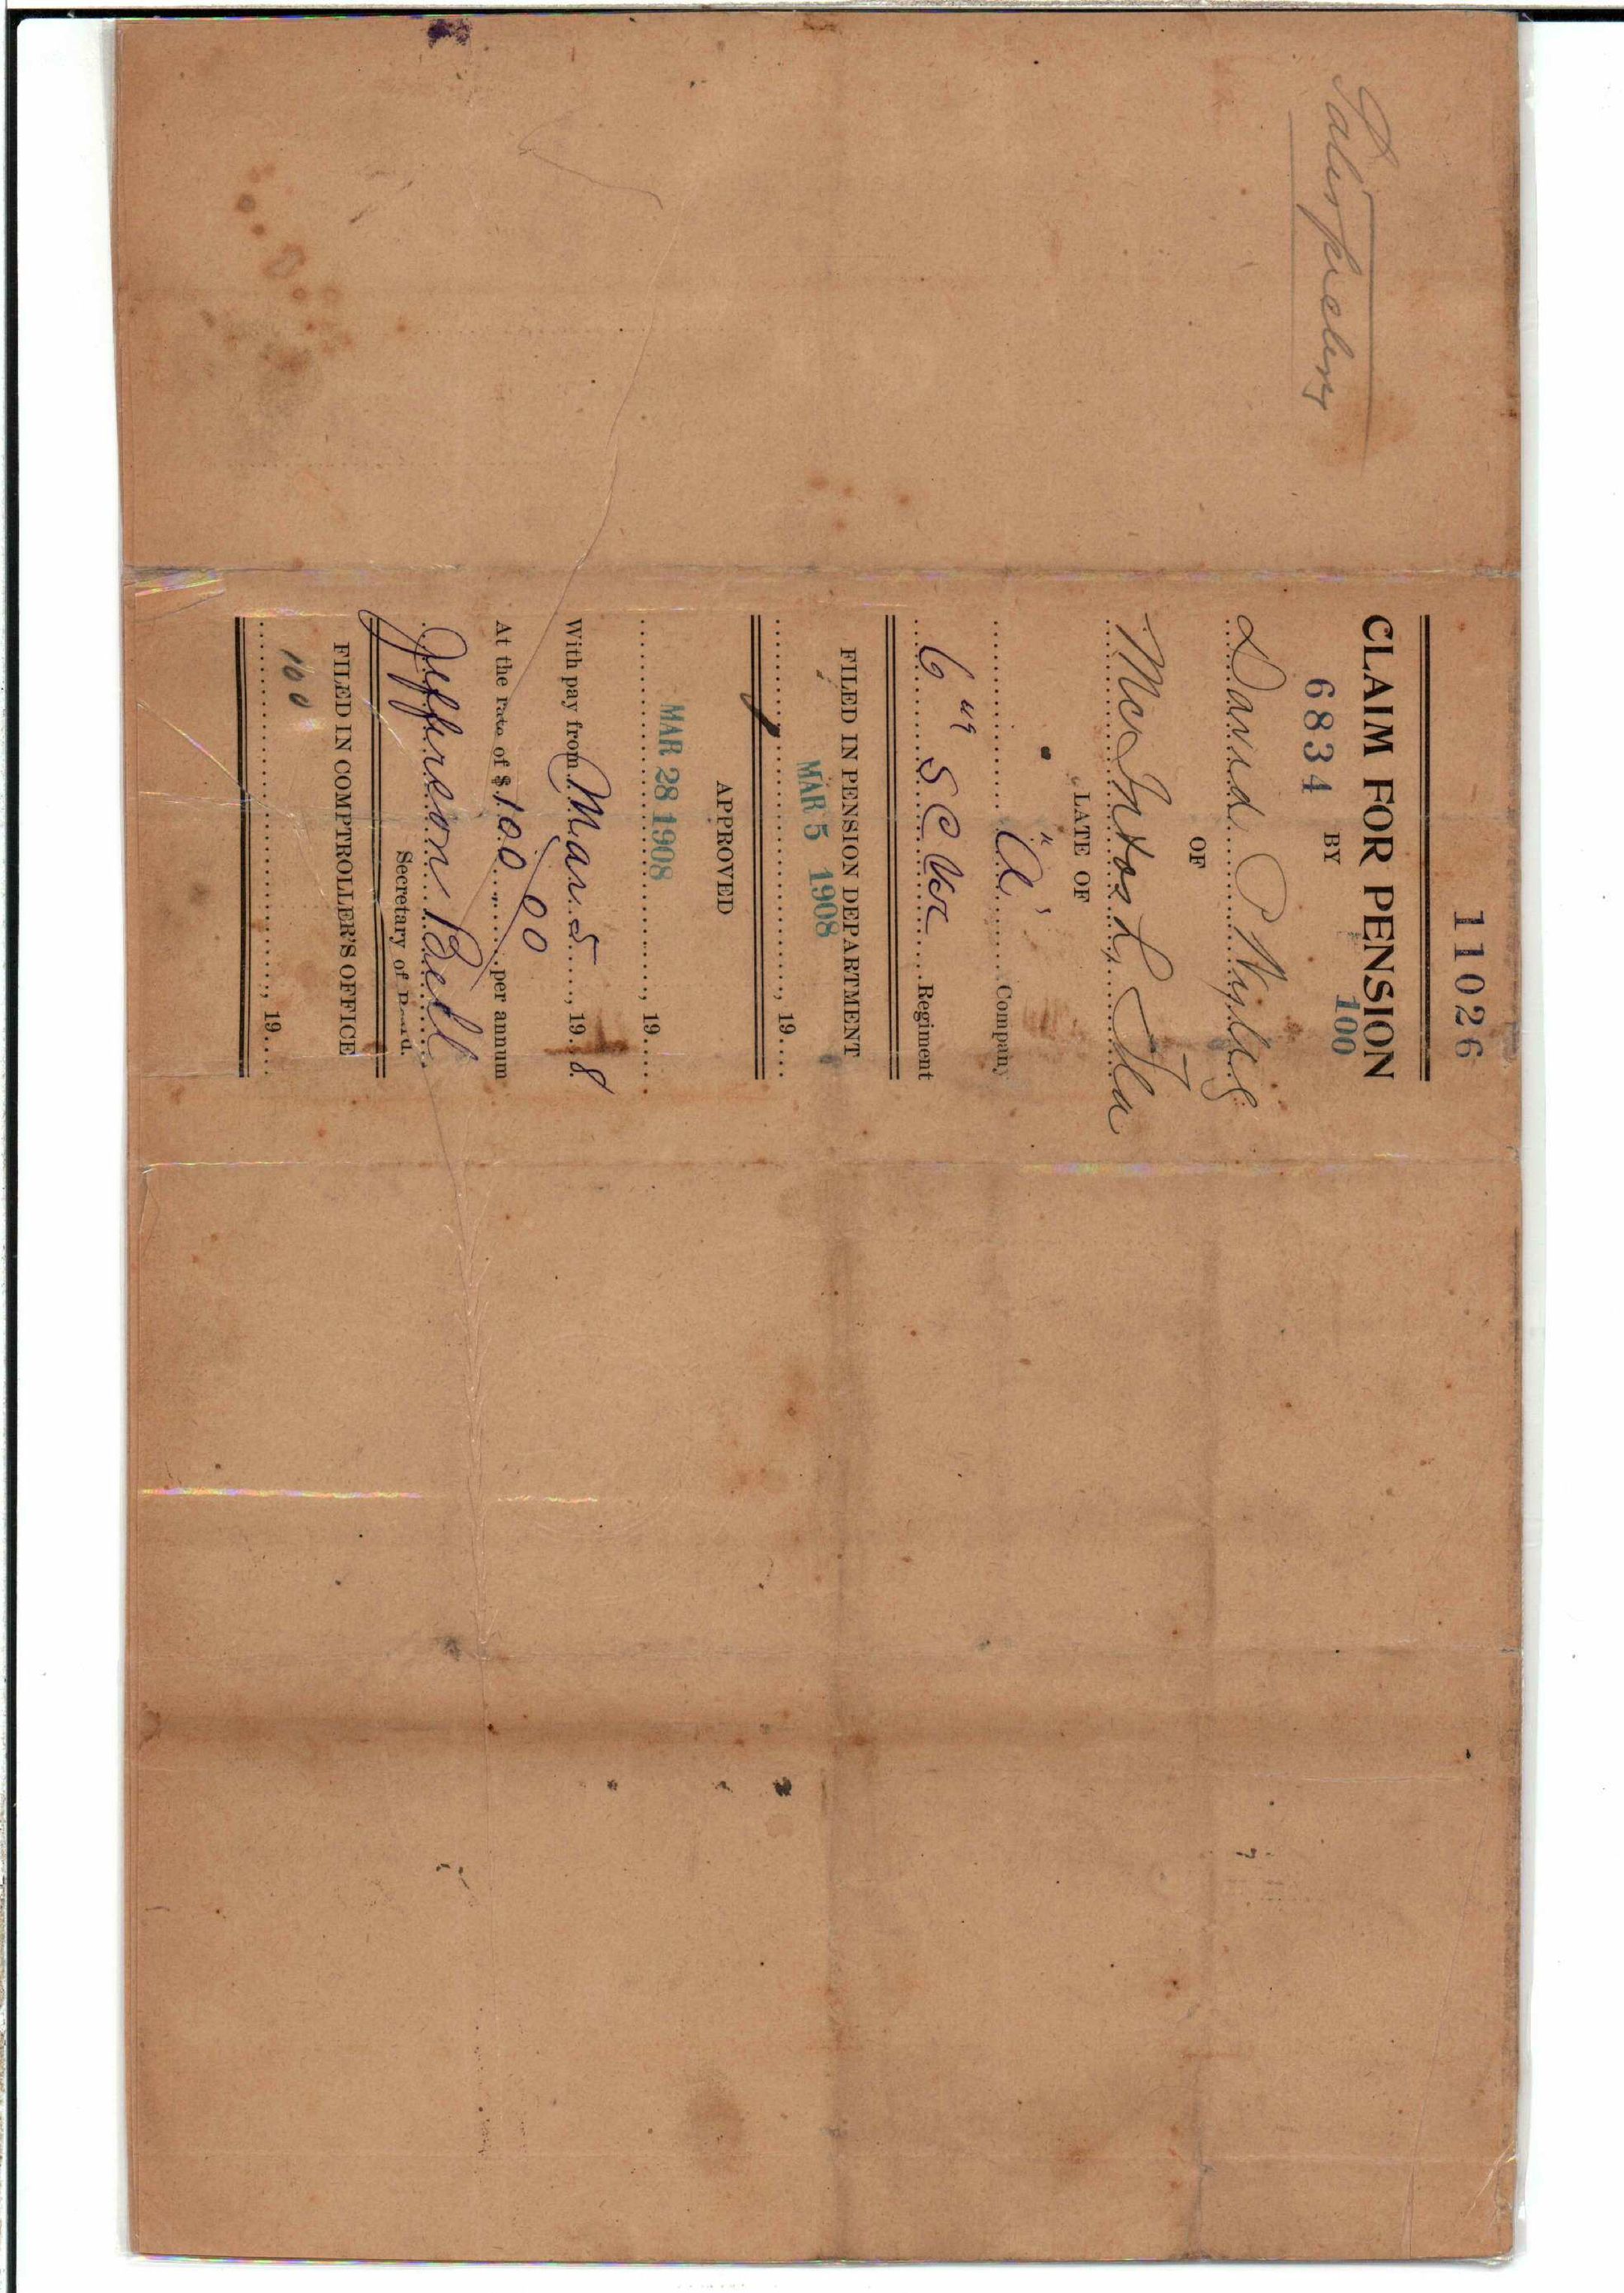 11026
CLAIM FOR PENSION
6834 BY 100
David P Wylie
OF
McIntosh, Fla
LATE OF
"A" Company
6th S C Vol Regiment
FILED IN PENSION DEPARTMENT
MAR 5 1908
, 19
APPROVED
MAR 28 1908
, 19
With pay from Mar 5, 19 8
At the rate of $ 100 00 per annum
Jefferson Bell
Secretary of Board.
FILED IN COMPTROLLER'S OFFICE
100
, 19